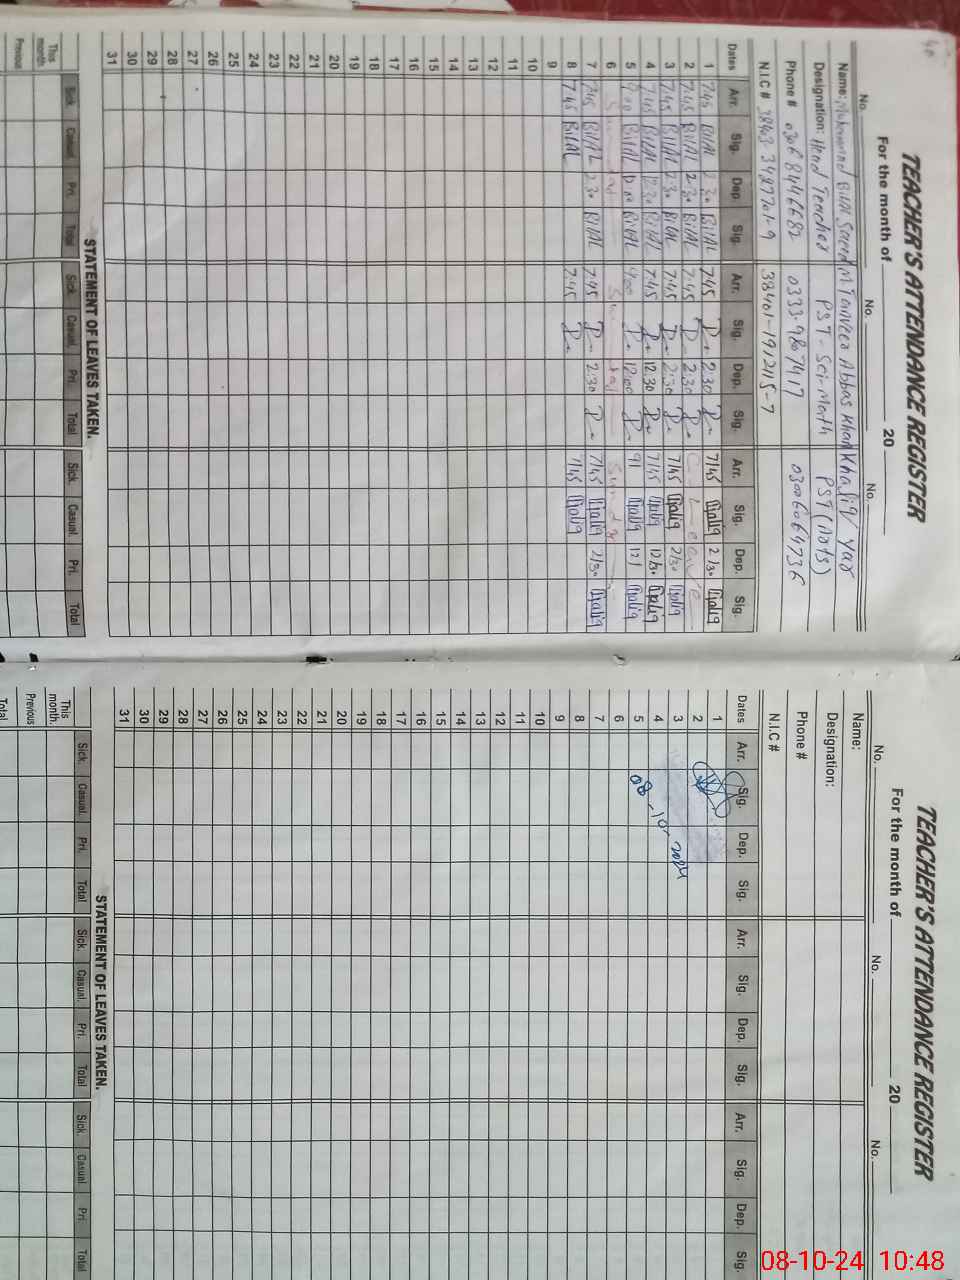 TEACHER'S ATTENDANCE REGISTER
For the month of 20
No. No. No.
Name: Muhammad Bilal Saeed M Tanveer Abbas Khan Khaliq Yar
Designation: Head Teacher PST - Sci-Math PST (Arts)
Phone # 0306 8446682 0333-9867417 03006064736
N.I.C # 38403 3487701-9 38401-1912115-7
Dates Arr. Sig. Dep. Sig. Arr. Sig. Dep. Sig. Arr. Sig. Dep. Sig.
1 7:45 BilAL 2:30 BilAL 7:45 2:30 7/45 2/30
2 7:45 BilAL 2:30 BilAL 7:45 2:30 C - Leave
3 7:45 BilAL 2:30 BilAL 7:45 2:30 7/45 2/30
4 7:45 BilAL 12:30 BilAL 7:45 12:30 7/45 12/30
5 9:00 BilAL 12:00 BilAL 9:00 12:00 9/ 12/
6 Sunday Sunday Sunday
7 7:45 BilAL 2:30 BilAL 7:45 2:30 7/45 2/30
8 7:45 BilAL 7:45 7/45
9
10
11
12
13
14
15
16
17
18
19
20
21
22
23
24
25
26
27
28
29
30
31
STATEMENT OF LEAVES TAKEN.
Sick. Casual. Pri. Total Sick. Casual. Pri. Total Sick. Casual. Pri. Total
This month.
Previous
TEACHER'S ATTENDANCE REGISTER
For the month of 20
No. No. No.
Name:
Designation:
Phone #
N.I.C #
Dates Arr. Sig. Dep. Sig. Arr. Sig. Dep. Sig. Arr. Sig. Dep. Sig.
1
2
3
4
5
6
7
8
9
10
11
12
13
14
15
16
17
18
19
20
21
22
23
24
25
26
27
28
29
30
31
08-10-2024
STATEMENT OF LEAVES TAKEN.
Sick. Casual. Pri. Total Sick. Casual. Pri. Total Sick. Casual Pri. Total
This month.
Previous
Total
08-10-24 10:48